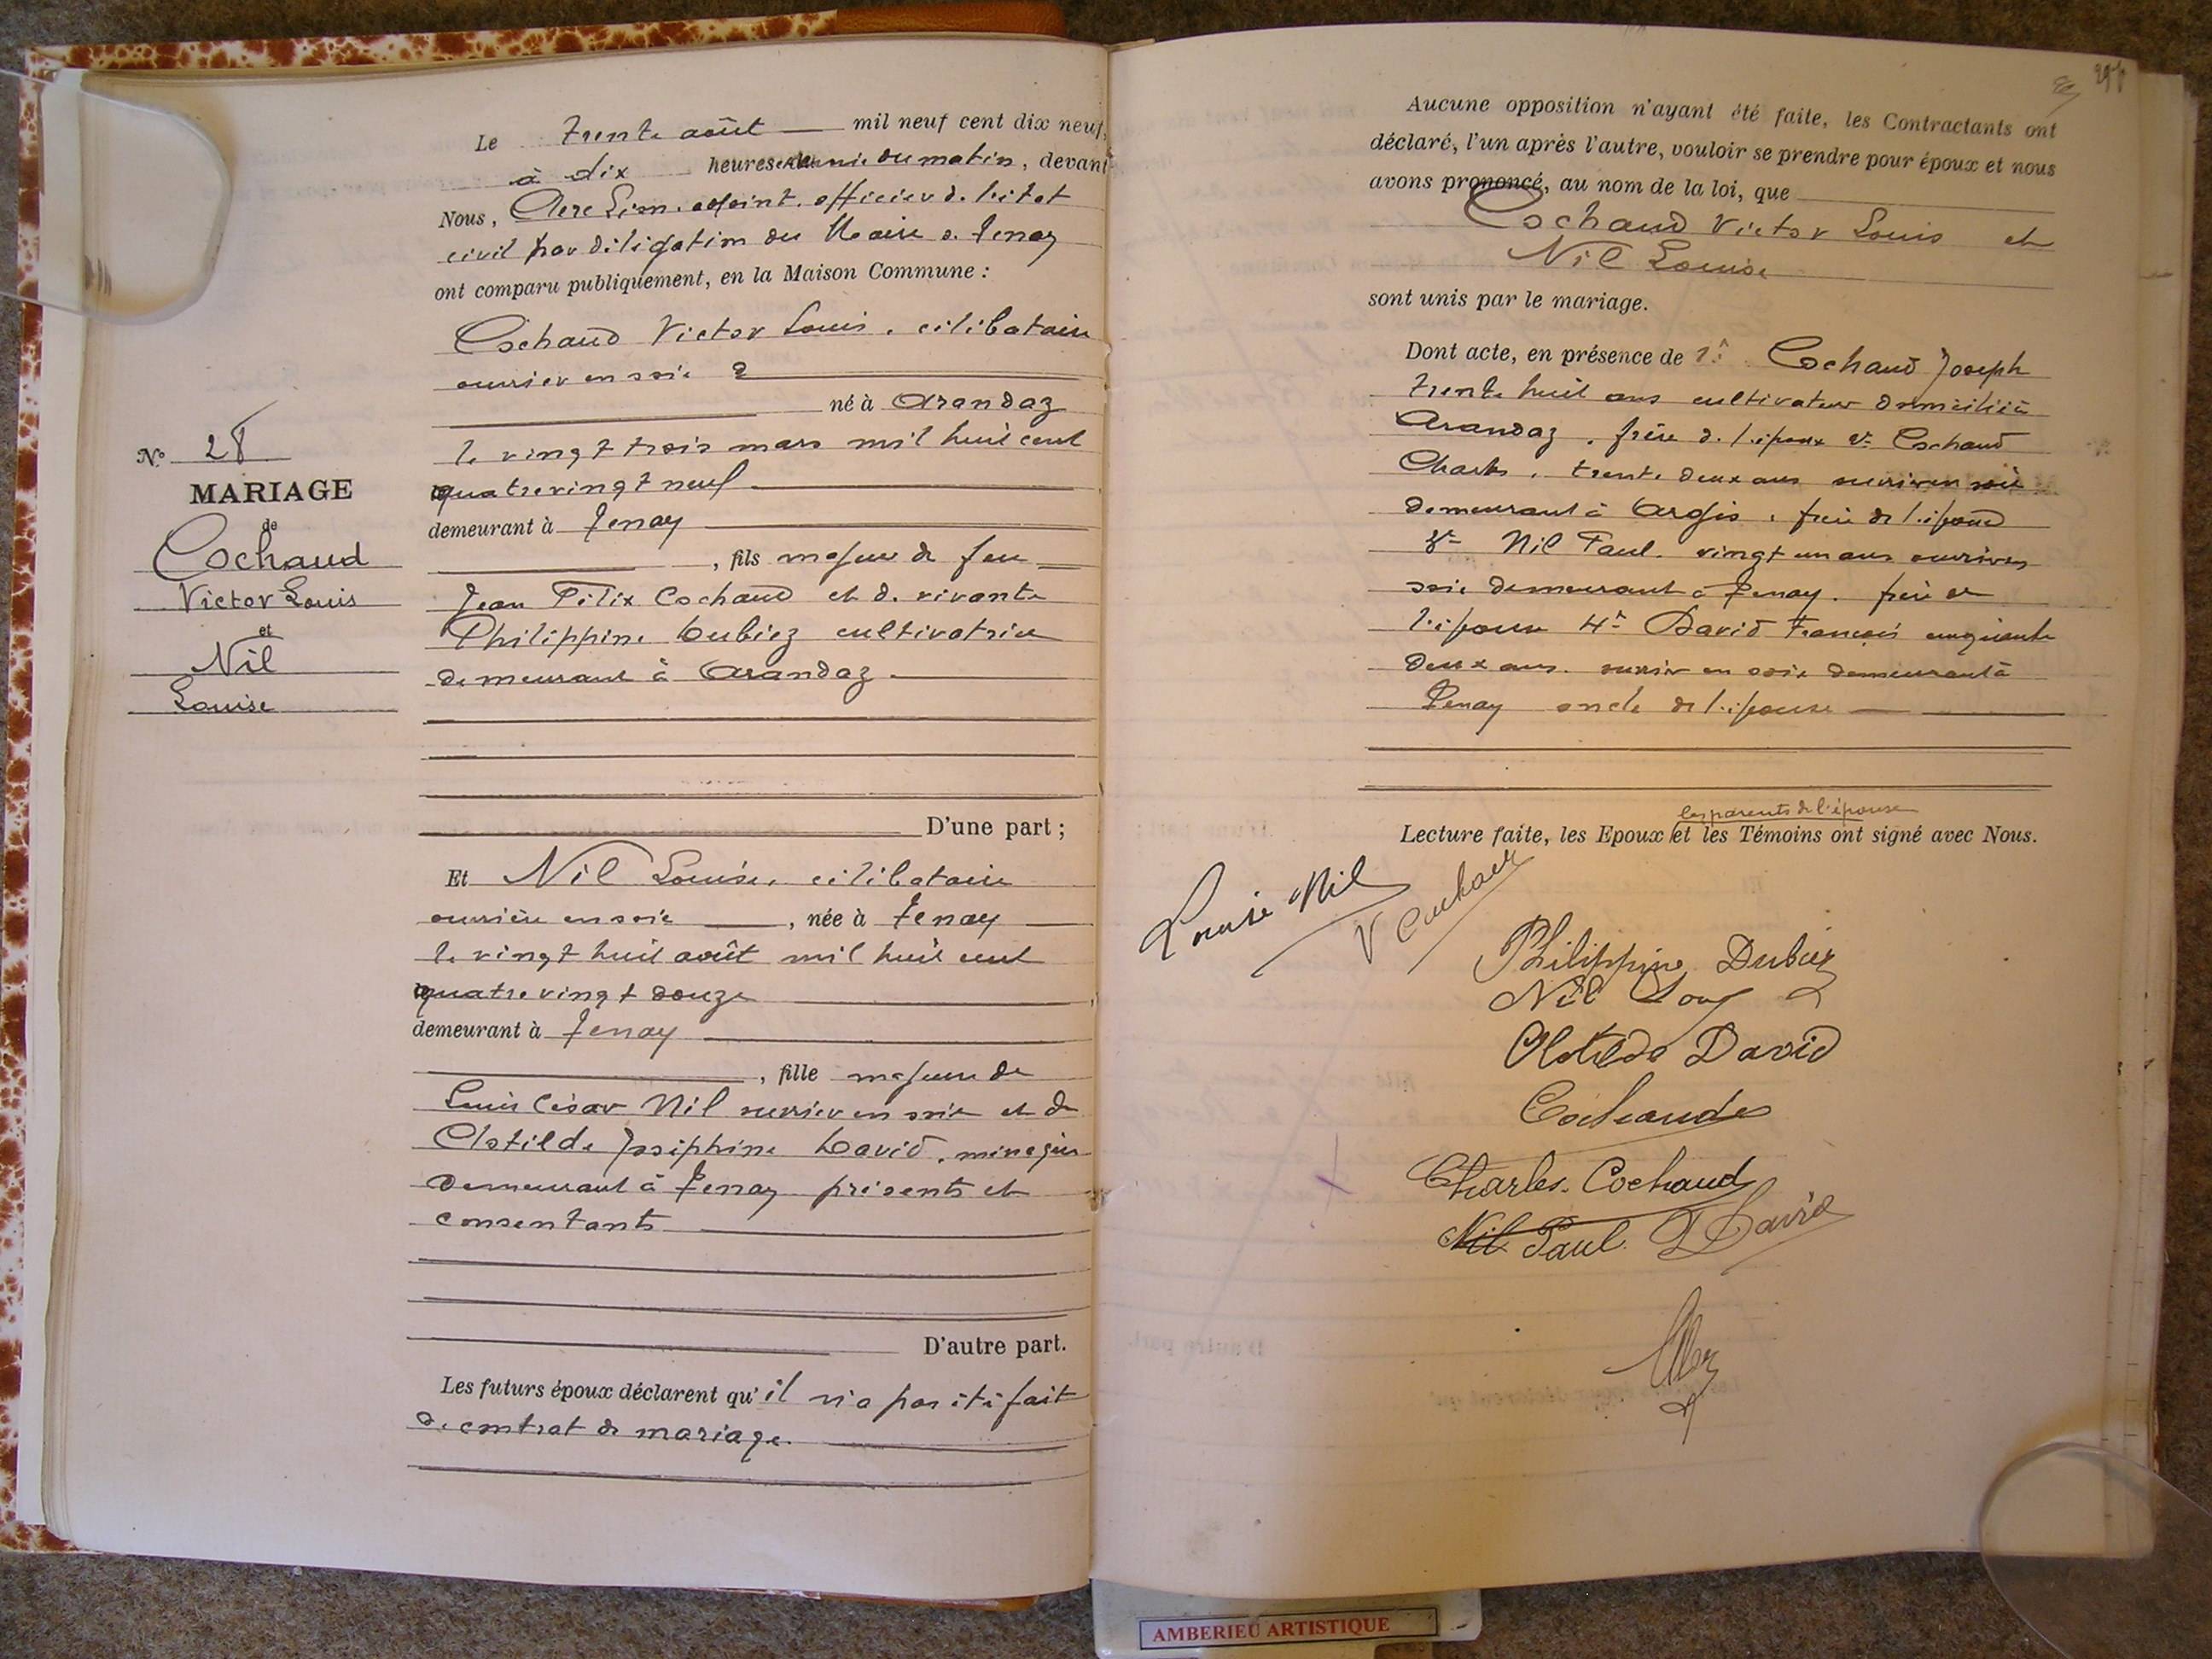 Le trente août mil neuf cent dix neuf,
à dix heures demie du matin, devant
Nous, adjoint, officier de l'état
civil par délégation du Maire de Tenay
ont comparu publiquement, en la Maison Commune :
Cochaud Victor Louis, célibataire
ouvrier en soie
né à Arandaz
le vingt trois mars mil huit cent
quatre vingt neuf
demeurant à Tenay
, fils majeur de feu
Jean Félix Cochaud et de vivante
Philippine Dubiez cultivatrice
demeurant à Arandaz
D'une part ;
Et Nil Louise, célibataire
ouvrière en soie, née à Tenay
le vingt huit août mil huit cent
quatre vingt douze
demeurant à Tenay
, fille majeure de
Louis César Nil ouvrier en soie et de
Clotilde Joséphine David, ménagère
demeurant à Tenay présents et
consentants
D'autre part.
Les futurs époux déclarent qu'il n'a pas été fait
de contrat de mariage.
No 28
MARIAGE
de
Cochaud
Victor Louis
et
Nil
Louise
Aucune opposition n'ayant été faite, les Contractants ont
déclaré, l'un après l'autre, vouloir se prendre pour époux et nous
avons prononcé, au nom de la loi, que
Cochaud Victor Louis et
Nil Louise
sont unis par le mariage.
Dont acte, en présence de 1º Cochaud Joseph
trente huit ans cultivateur domicilié à
Arandaz, frère de l'époux 2º Cochaud
Charles, trente deux ans ouvrier en soie
demeurant à Argis, frère de l'époux
3º Nil Paul vingt un ans ouvrier en
soie demeurant à Tenay, frère de
l'épouse 4º David François cinquante
deux ans ouvrier en soie demeurant à
Tenay oncle de l'épouse
les parents de l'épouse
Lecture faite, les Epoux et les Témoins ont signé avec Nous.
Louise Nil
V Cochaud
Philippine Dubiez
Nil Louis
Clotilde David
Cochaud
Charles Cochaud
Nil Paul David
AMBERIEU ARTISTIQUE